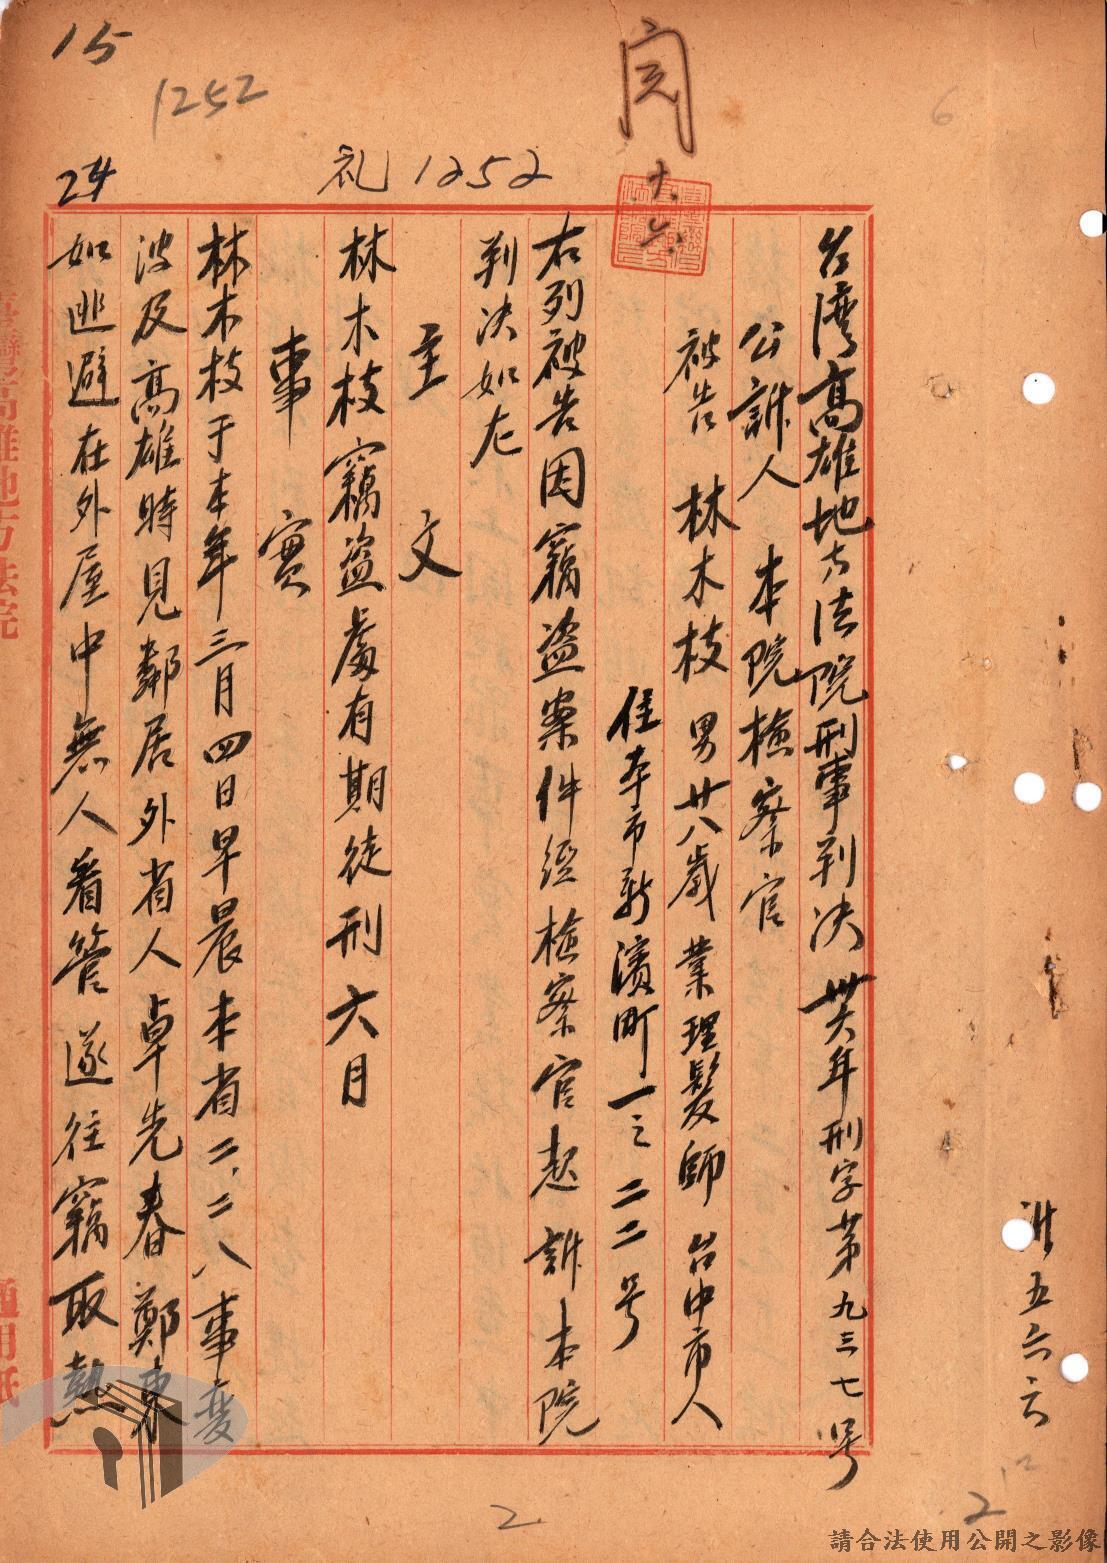 15
1252
24
礼 1252
十六
台灣高雄地方法院刑事判決 卅六年刑字第九三七号
公訴人 本院檢察官
被告 林木枝 男 廿八歲 業理髮師 台中市人
住本市新濱町一之二二号
右列被告因竊盜案件經檢察官起訴本院
判決如左
主文
林木枝竊盜處有期徒刑六月
事實
林木枝于本年三月四日早晨本省二、二八事變
波及高雄時見鄰居外省人卓先春鄭東
如逃避在外屋中無人看管遂往竊取熱
五六六
2
12
2
臺灣高雄地方法院
通用紙
請合法使用公開之影像